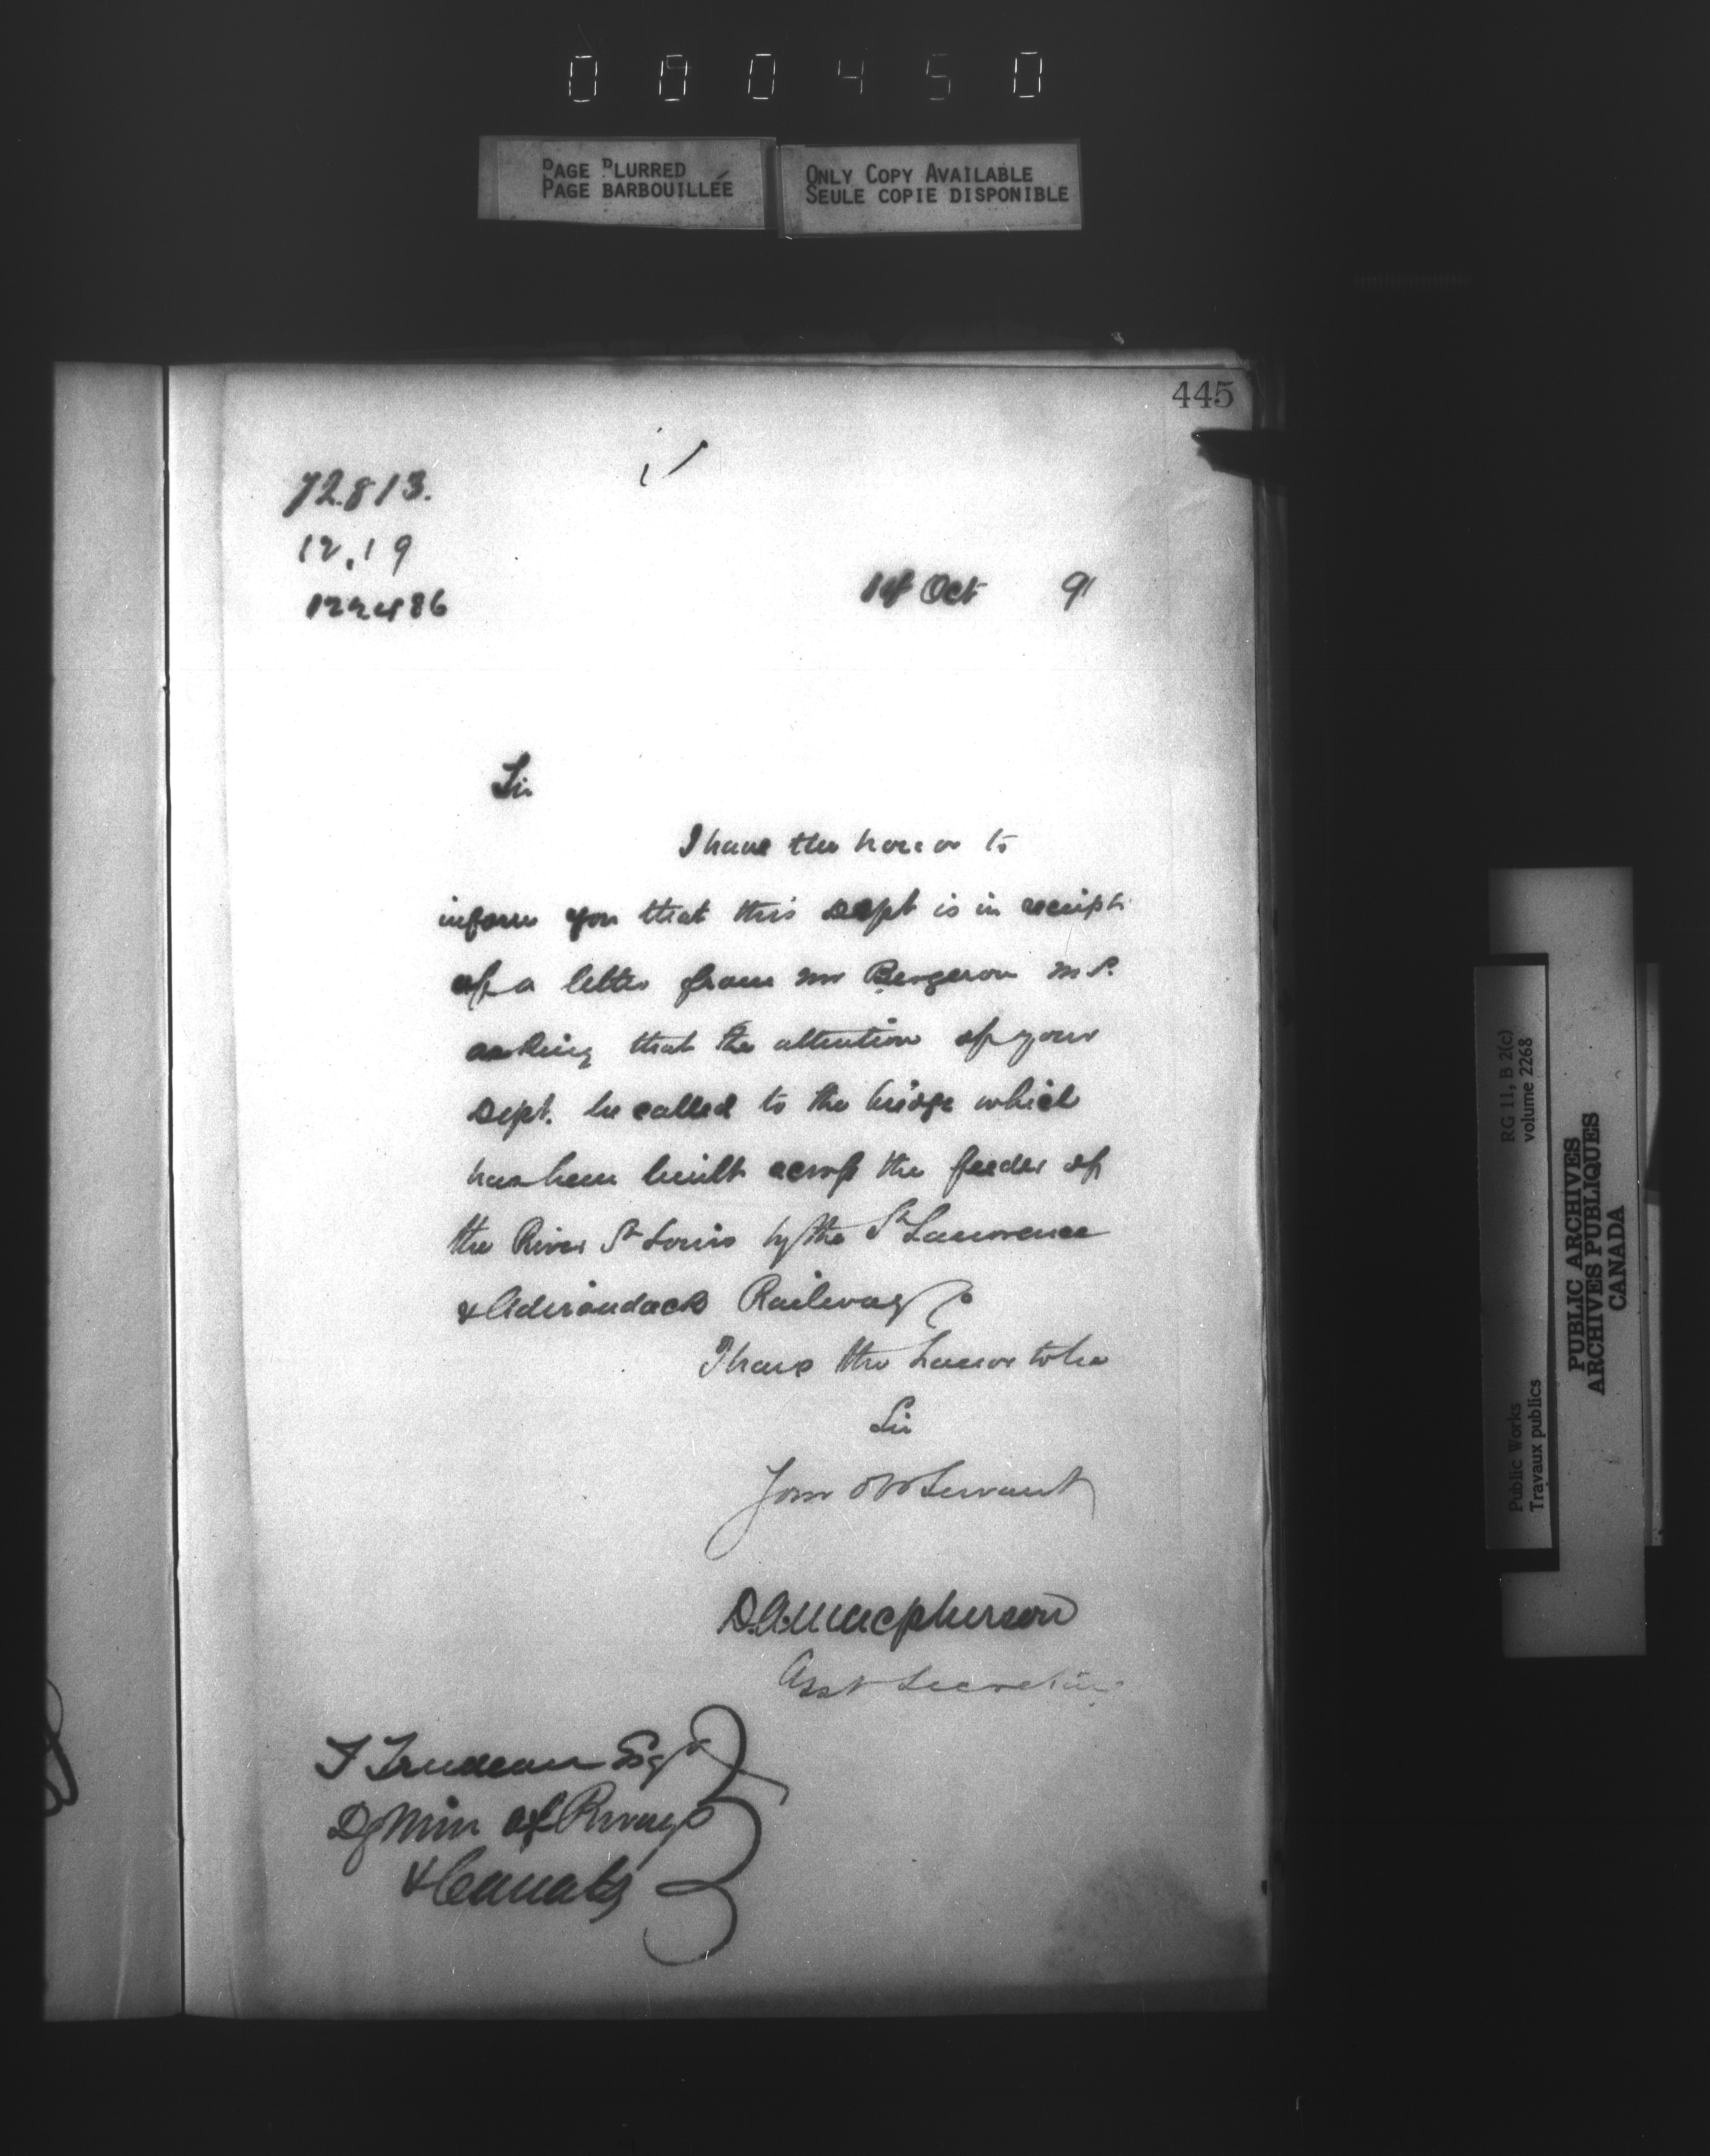 000450
PAGE BLURRED
PAGE BARBOUILLÉE
ONLY COPY AVAILABLE
SEULE COPIE DISPONIBLE
445
72.813.
12.19
122486
14 Oct 91
Sir
I have the honor to
inform you that this Dept is in receipt
of a letter from Mr Bergeron M.P.
asking that the attention of your
Dept. be called to the bridge which
has been built across the feeder of
the River St Louis by the St Lawrence
& Adirondack Railway
I have the honor to be
Sir
Your Ob Servant
D.A. Macpherson
Asst Secretary
T Trudeau Esqr
Dy Min of Rways
& Canals
RG 11, B 2(c)
volume 2268
Public Works
Travaux publics
PUBLIC ARCHIVES
ARCHIVES PUBLIQUES
CANADA